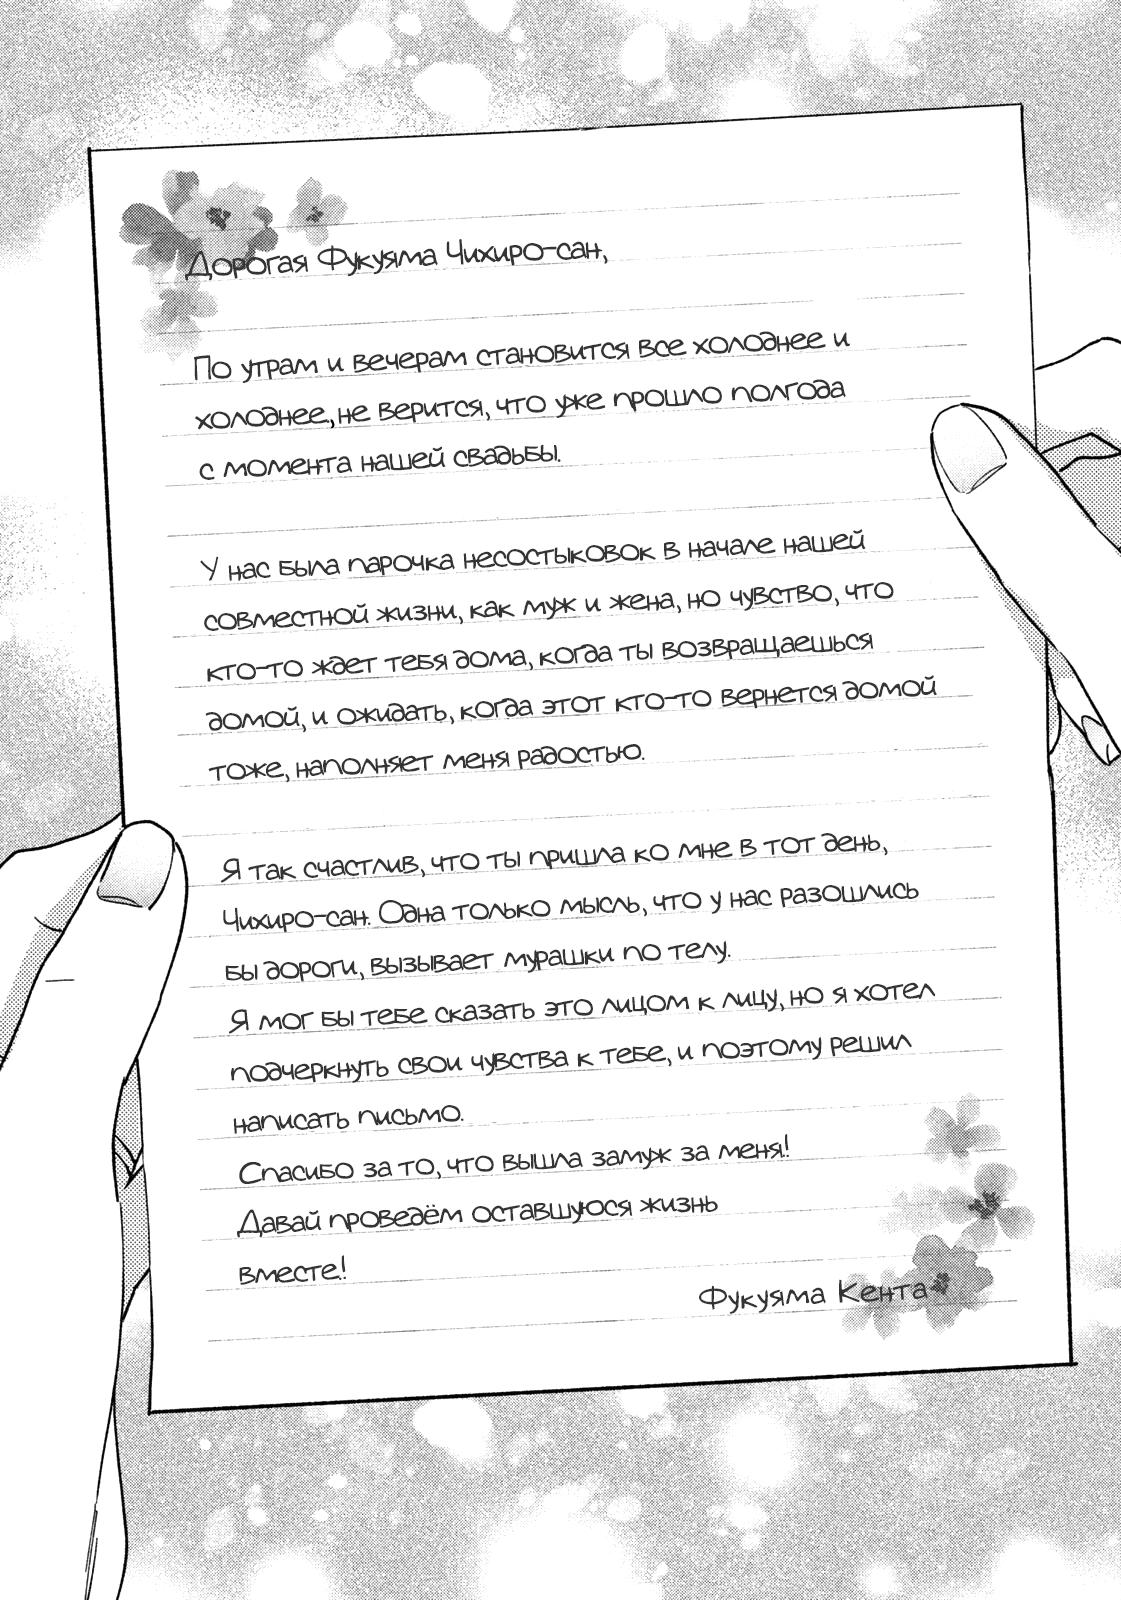 Дорогая Фукуяма Чихиро-сан,
По утрам и вечерам становится все холоднее и
холоднее, не верится, что уже прошло полгода
с момента нашей свадьбы.
У нас была парочка несостыковок в начале нашей
совместной жизни, как муж и жена, но чувство, что
кто-то ждет тебя дома, когда ты возвращаешься
домой, и ожидать, когда этот кто-то вернется домой
тоже, наполняет меня радостью.
Я так счастлив, что ты пришла ко мне в тот день,
Чихиро-сан. Одна только мысль, что у нас разошлись
бы дороги, вызывает мурашки по телу.
Я мог бы тебе сказать это лицом к лицу, но я хотел
подчеркнуть свои чувства к тебе, и поэтому решил
написать письмо.
Спасибо за то, что вышла замуж за меня!
Давай проведём оставшуюся жизнь
вместе!
Фукуяма Кента